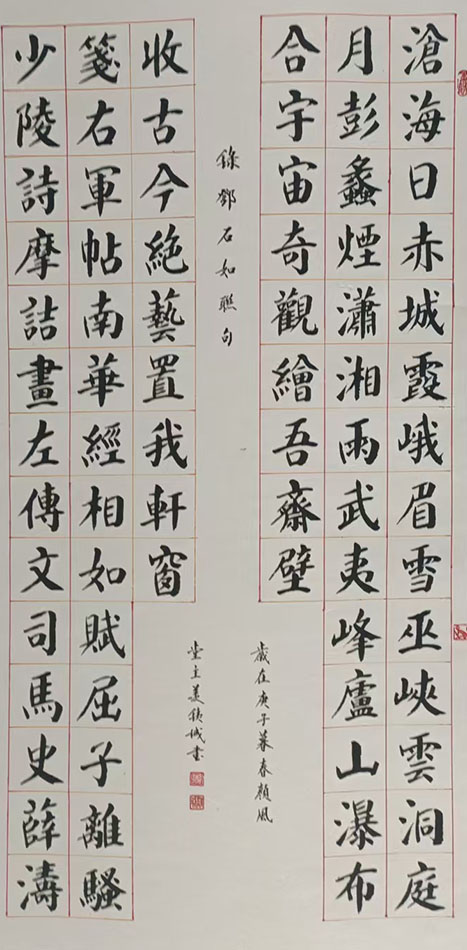 滄海日赤城霞峨眉雪巫峽雲洞庭
月彭蠡煙瀟湘雨武夷峰廬山瀑布
合宇宙奇觀繪吾齋壁
少陵詩摩詰畫左傳文司馬史薛濤
箋右軍帖南華經相如賦屈子離騷
收古今絕藝置我軒窗
錄鄧石如聯句
歲在庚子暮春顏風
堂主姜書